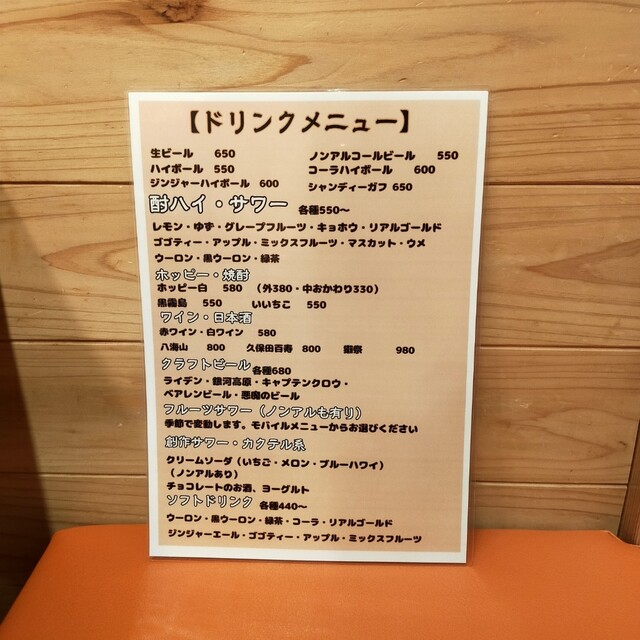 【ドリンクメニュー】
生ビール 650 ノンアルコールビール 550
ハイボール 550 コーラハイボール 600
ジンジャーハイボール 600 シャンディーガフ 650
酎ハイ・サワー 各種550〜
レモン・ゆず・グレープフルーツ・キョホウ・リアルゴールド
ゴゴティー・アップル・ミックスフルーツ・マスカット・ウメ
ウーロン・黒ウーロン・緑茶
ホッピー・焼酎
ホッピー白 580 （外380・中おかわり330）
黒霧島 550 いいちこ 550
ワイン・日本酒
赤ワイン・白ワイン 580
八海山 800 久保田百寿 800 獺祭 980
クラフトビール 各種680
ライデン・銀河高原・キャプテンクロウ・
ベアレンビール・悪魔のビール
フルーツサワー（ノンアルも有り）
季節で変動します。モバイルメニューからお選びください
創作サワー・カクテル系
クリームソーダ（いちご・メロン・ブルーハワイ）
（ノンアルあり）
チョコレートのお酒、ヨーグルト
ソフトドリンク 各種440〜
ウーロン・黒ウーロン・緑茶・コーラ・リアルゴールド
ジンジャーエール・ゴゴティー・アップル・ミックスフルーツ